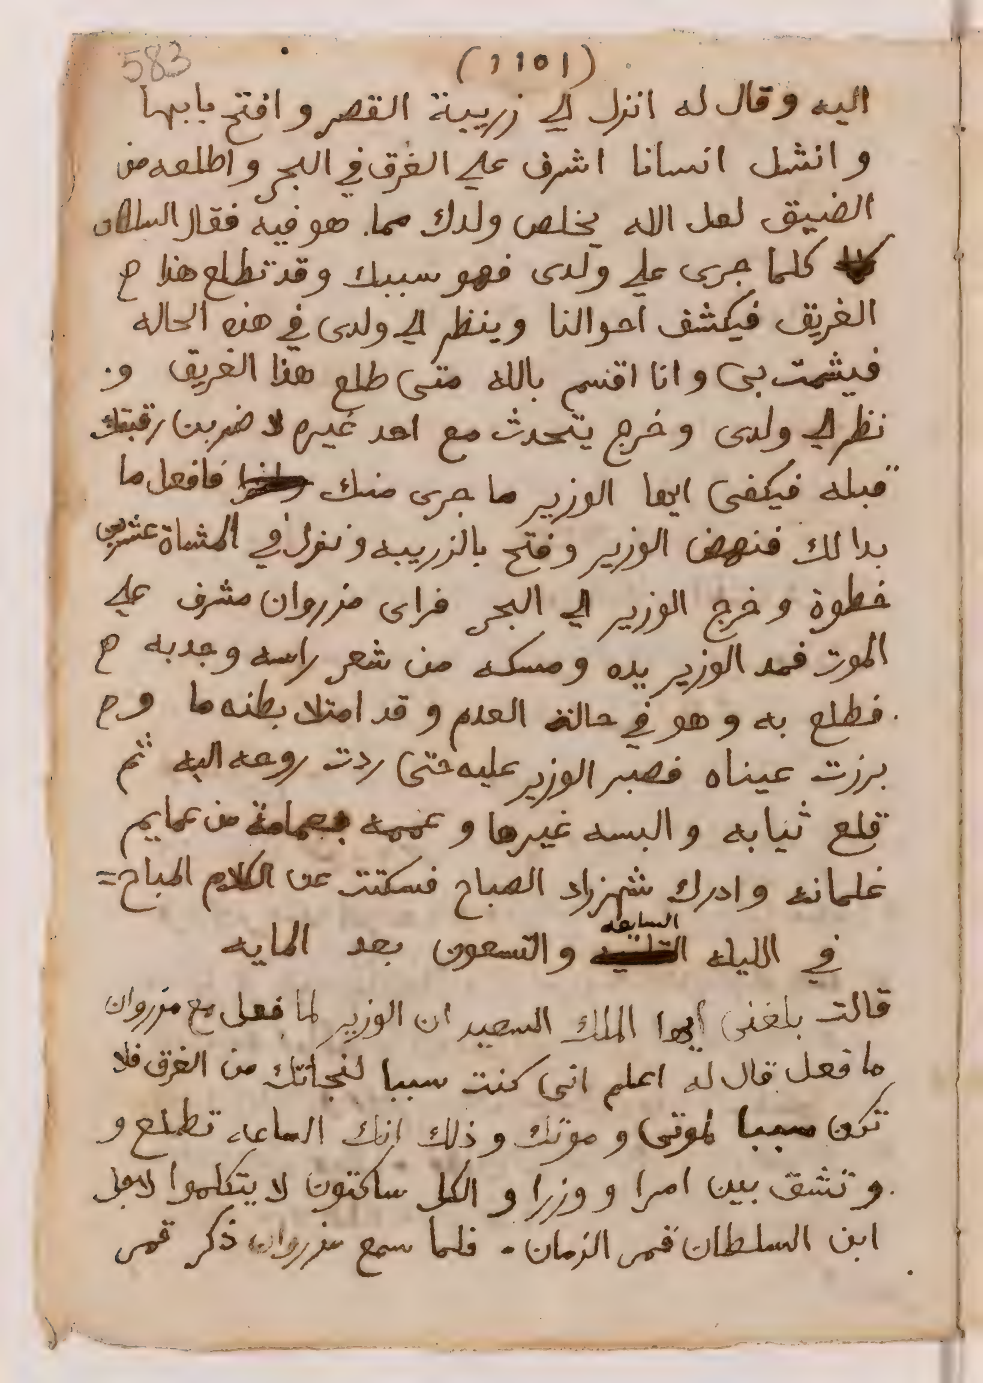 583
(1101)
اليه وقال له انزل الي زريبة القصر وافتح بابها
وانشل انسانا اشرف علي الغرق في البحر واطلعه من
الضيق لعل الله يخلص ولدك مما هو فيه فقال السلطان
كلما جرى علي ولدى فهو سببك وقد تطلع هذا
الغريق فيكشف احوالنا وينظر الي ولدى في هذه الحاله
فيشمت بى وانا اقسم بالله متى طلع هذا الغريق و
نظر الي ولدى وخرج يتحدث مع احد غيره لاضربن رقبتك
قبله فيكفى ايها الوزير ما جرى منك فافعل ما
بدا لك فنهض الوزير وفتح بالزريبه ونزل في المشاة عشرين
خطوة وخرج الوزير الي البحر فراى مزروان مشرف علي
الموت فمد الوزير يده ومسكه من شعر راسه وجدبه
فطلع به وهو في حالة العدم وقد امتلا بطنه ما و
برزت عيناه فصبر الوزير عليه حتى ردت روحه اليه ثم
قلع ثيابه والبسه غيرها وعممه بعمامة من عمايم
غلمانه وادرك شهرزاد الصباح فسكتت عن الكلام المباح =
في الليله السابعه والتسعون بعد المايه
قالت بلغنى ايها الملك السعيد ان الوزير لما فعل مع مزروان
ما فعل قال له اعلم انى كنت سببا لنجاتك من الغرق فلا
تكن سببا لموتى وموتك وذلك انك الساعه تطلع و
وتشق بين امرا ووزرا والكل ساكتون لا يتكلموا لاجل
ابن السلطان قمر الزمان . فلما سمع مزروان ذكر قمر